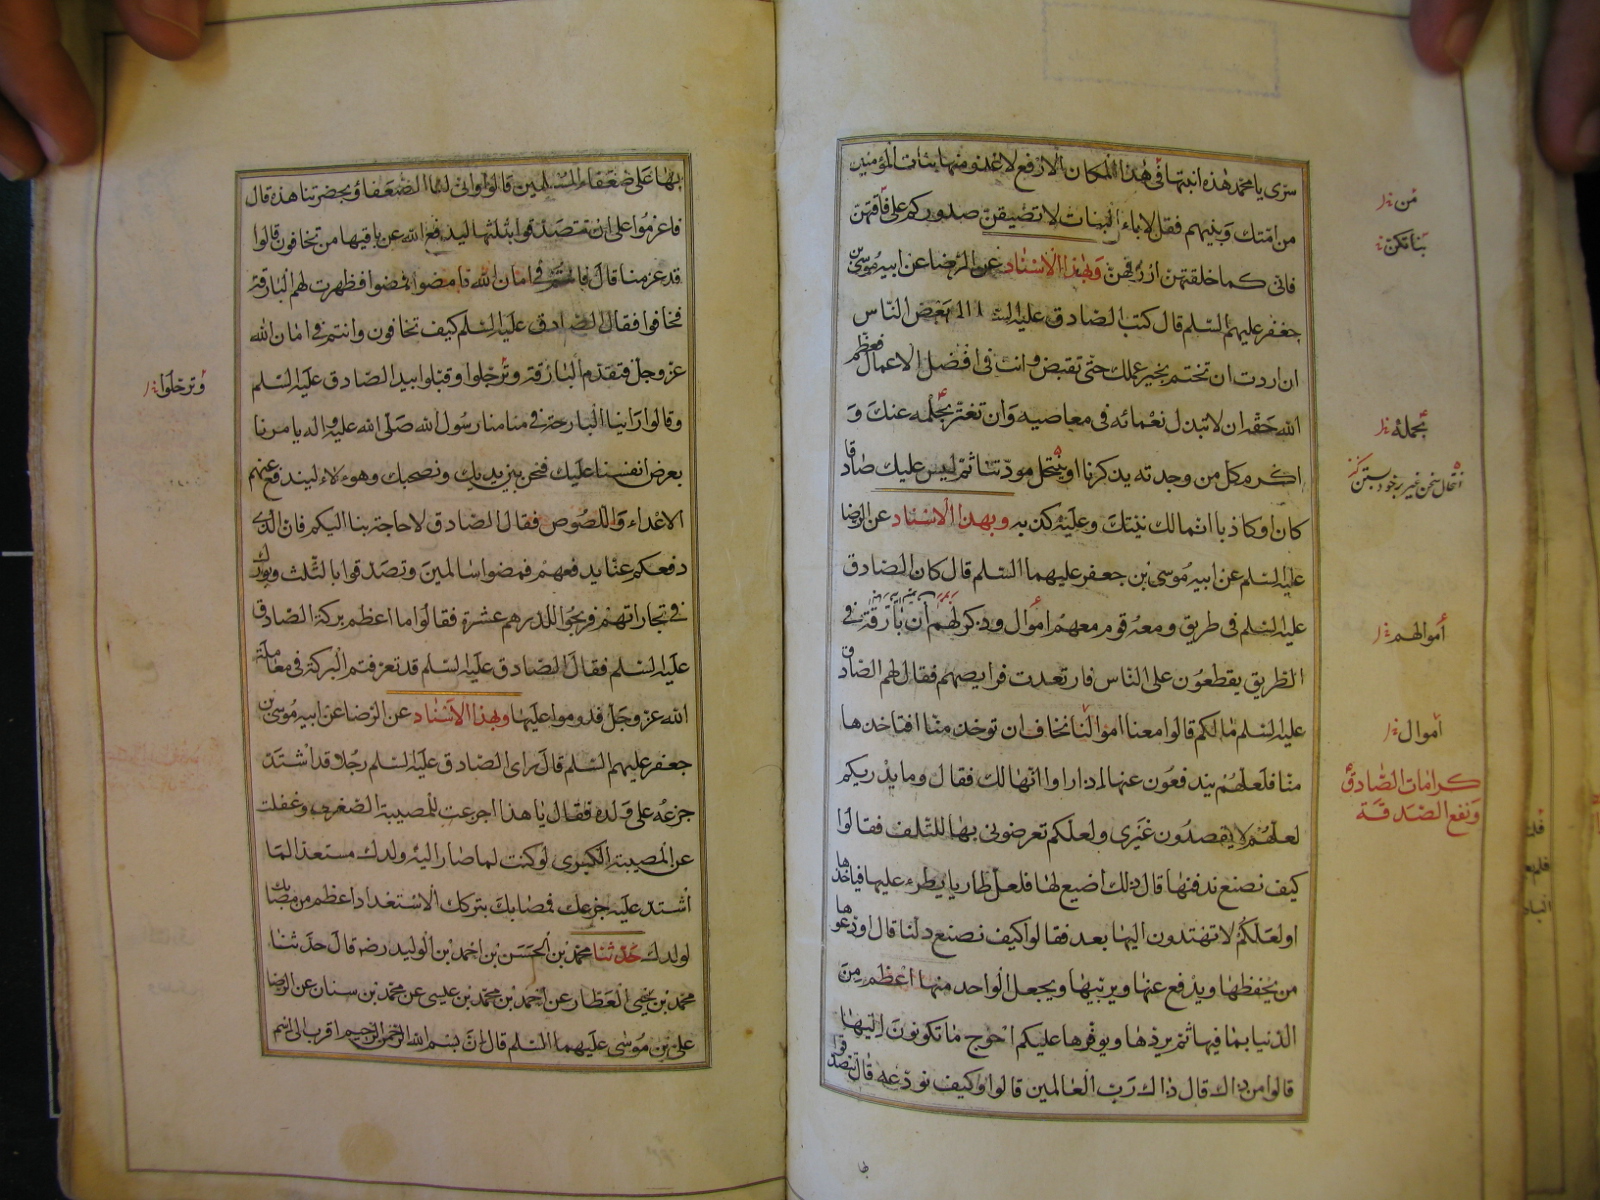 سرى يا محمد هذه انبتها فى هذا المكان الارفع لاغذو منها بنات المؤمنين
من امتك وبنيهم فقل لاباء البنات لا تضيقن صدوركم على فاقتهن
فانى كما خلقتهن ارزقهن وبهذا الاسناد عن الرضا عن ابيه موسى بن
جعفر عليهم السلم قال كتب الصادق عليه السلم الى بعض الناس
ان اردت ان تختم بخير عملك حتى تقبض وانت فى افضل الاعمال فعظم
الله حقه ان لا تبذل نعمائه فى معاصيه وان تغتر بحلمه عنك و
اكرم كل من وجدته يذكرنا او ينتحل مودتنا ثم ليس عليك صادقا
كان او كاذبا انما لك نيتك وعليه كذبه وبهذا الاسناد عن الرضا
عليه السلم عن ابيه موسى بن جعفر عليهما السلم قال كان الصادق
عليه السلم فى طريق ومعه قوم معهم اموال وذكر لهم ان بارقة فى
الطريق يقطعون على الناس فارتعدت فرايصهم فقال لهم الصادق
عليه السلم ما لكم قالوا معنا اموالنا نخاف ان توخذ منا افتاخذها
منا فلعلهم يندفعون عنها اذا راوا انها لك فقال وما يدريكم
لعلهم لا يقصدون غيرى ولعلكم تعرضونى بها للتلف فقالوا
كيف نصنع ندفنها قال ذلك اضيع لها فلعل طاريا يطرء عليها فياخذها
او لعلكم لا تهتدون اليها بعد فقالوا كيف نصنع دلنا قال اودعوها
من يحفظها ويدفع عنها ويربيها ويجعل الواحد منها اعظم من
الدنيا بما فيها ثم يردها ويوفرها عليكم احوج ما تكونون اليها
قالوا من ذاك قال ذاك رب العالمين قالوا وكيف نودعه قال تتصدقوا
من
بناتكن
بحمله
انتحال سخن غير بر خود بستن
اموالهم
اموال
كرامات الصادق
ونفع الصدقة
بها على ضعفاء المسلمين قالوا وانى لنا الضعفاء بحضرتنا هذه قال
فاعزموا على ان تتصدقوا بثلثها ليدفع الله عن باقيها من تخافون قالوا
قد عزمنا قال فانتم فى امان الله فامضوا فمضوا فظهرت لهم البارقة
فخافوا فقال الصادق عليه السلم كيف تخافون وانتم فى امان الله
عز وجل فتقدم البارقة وترجلوا وقبلوا يد الصادق عليه السلم
وقالوا راينا البارحة فى منامنا رسول الله صلى الله عليه واله يامرنا
بعرض انفسنا عليك فنحن بين يديك ونصحبك وهؤلاء ليندفع عنهم
الاعداء واللصوص فقال الصادق لا حاجة بنا اليكم فان الذى
دفعكم عنا يدفعهم فمضوا سالمين وتصدقوا بالثلث وبورك
فى تجاراتهم فربحوا للدرهم عشرة فقالوا ما اعظم بركة الصادق
عليه السلم فقال الصادق عليه السلم قد تعرفتم البركة فى معاملة
الله عز وجل فدوموا عليها وبهذا الاسناد عن الرضا عن ابيه موسى بن
جعفر عليهم السلم قال راى الصادق عليه السلم رجلا قد اشتد
جزعه على ولده فقال يا هذا اجزعت للمصيبة الصغرى وغفلت
عن المصيبة الكبرى لو كنت لما صار اليه ولدك مستعدا لما
اشتد عليه جزعك فمصابك بتركك الاستعداد اعظم من مصابك
لولدك حدثنا محمد بن الحسن بن احمد بن الوليد رضه قال حدثنا
محمد بن يحيى العطار عن احمد بن محمد بن عيسى عن محمد بن سنان عن الرضا
على بن موسى عليهما السلم قال ان بسم الله الرحمن الرحيم اقرب الى اسم
وترجلوا